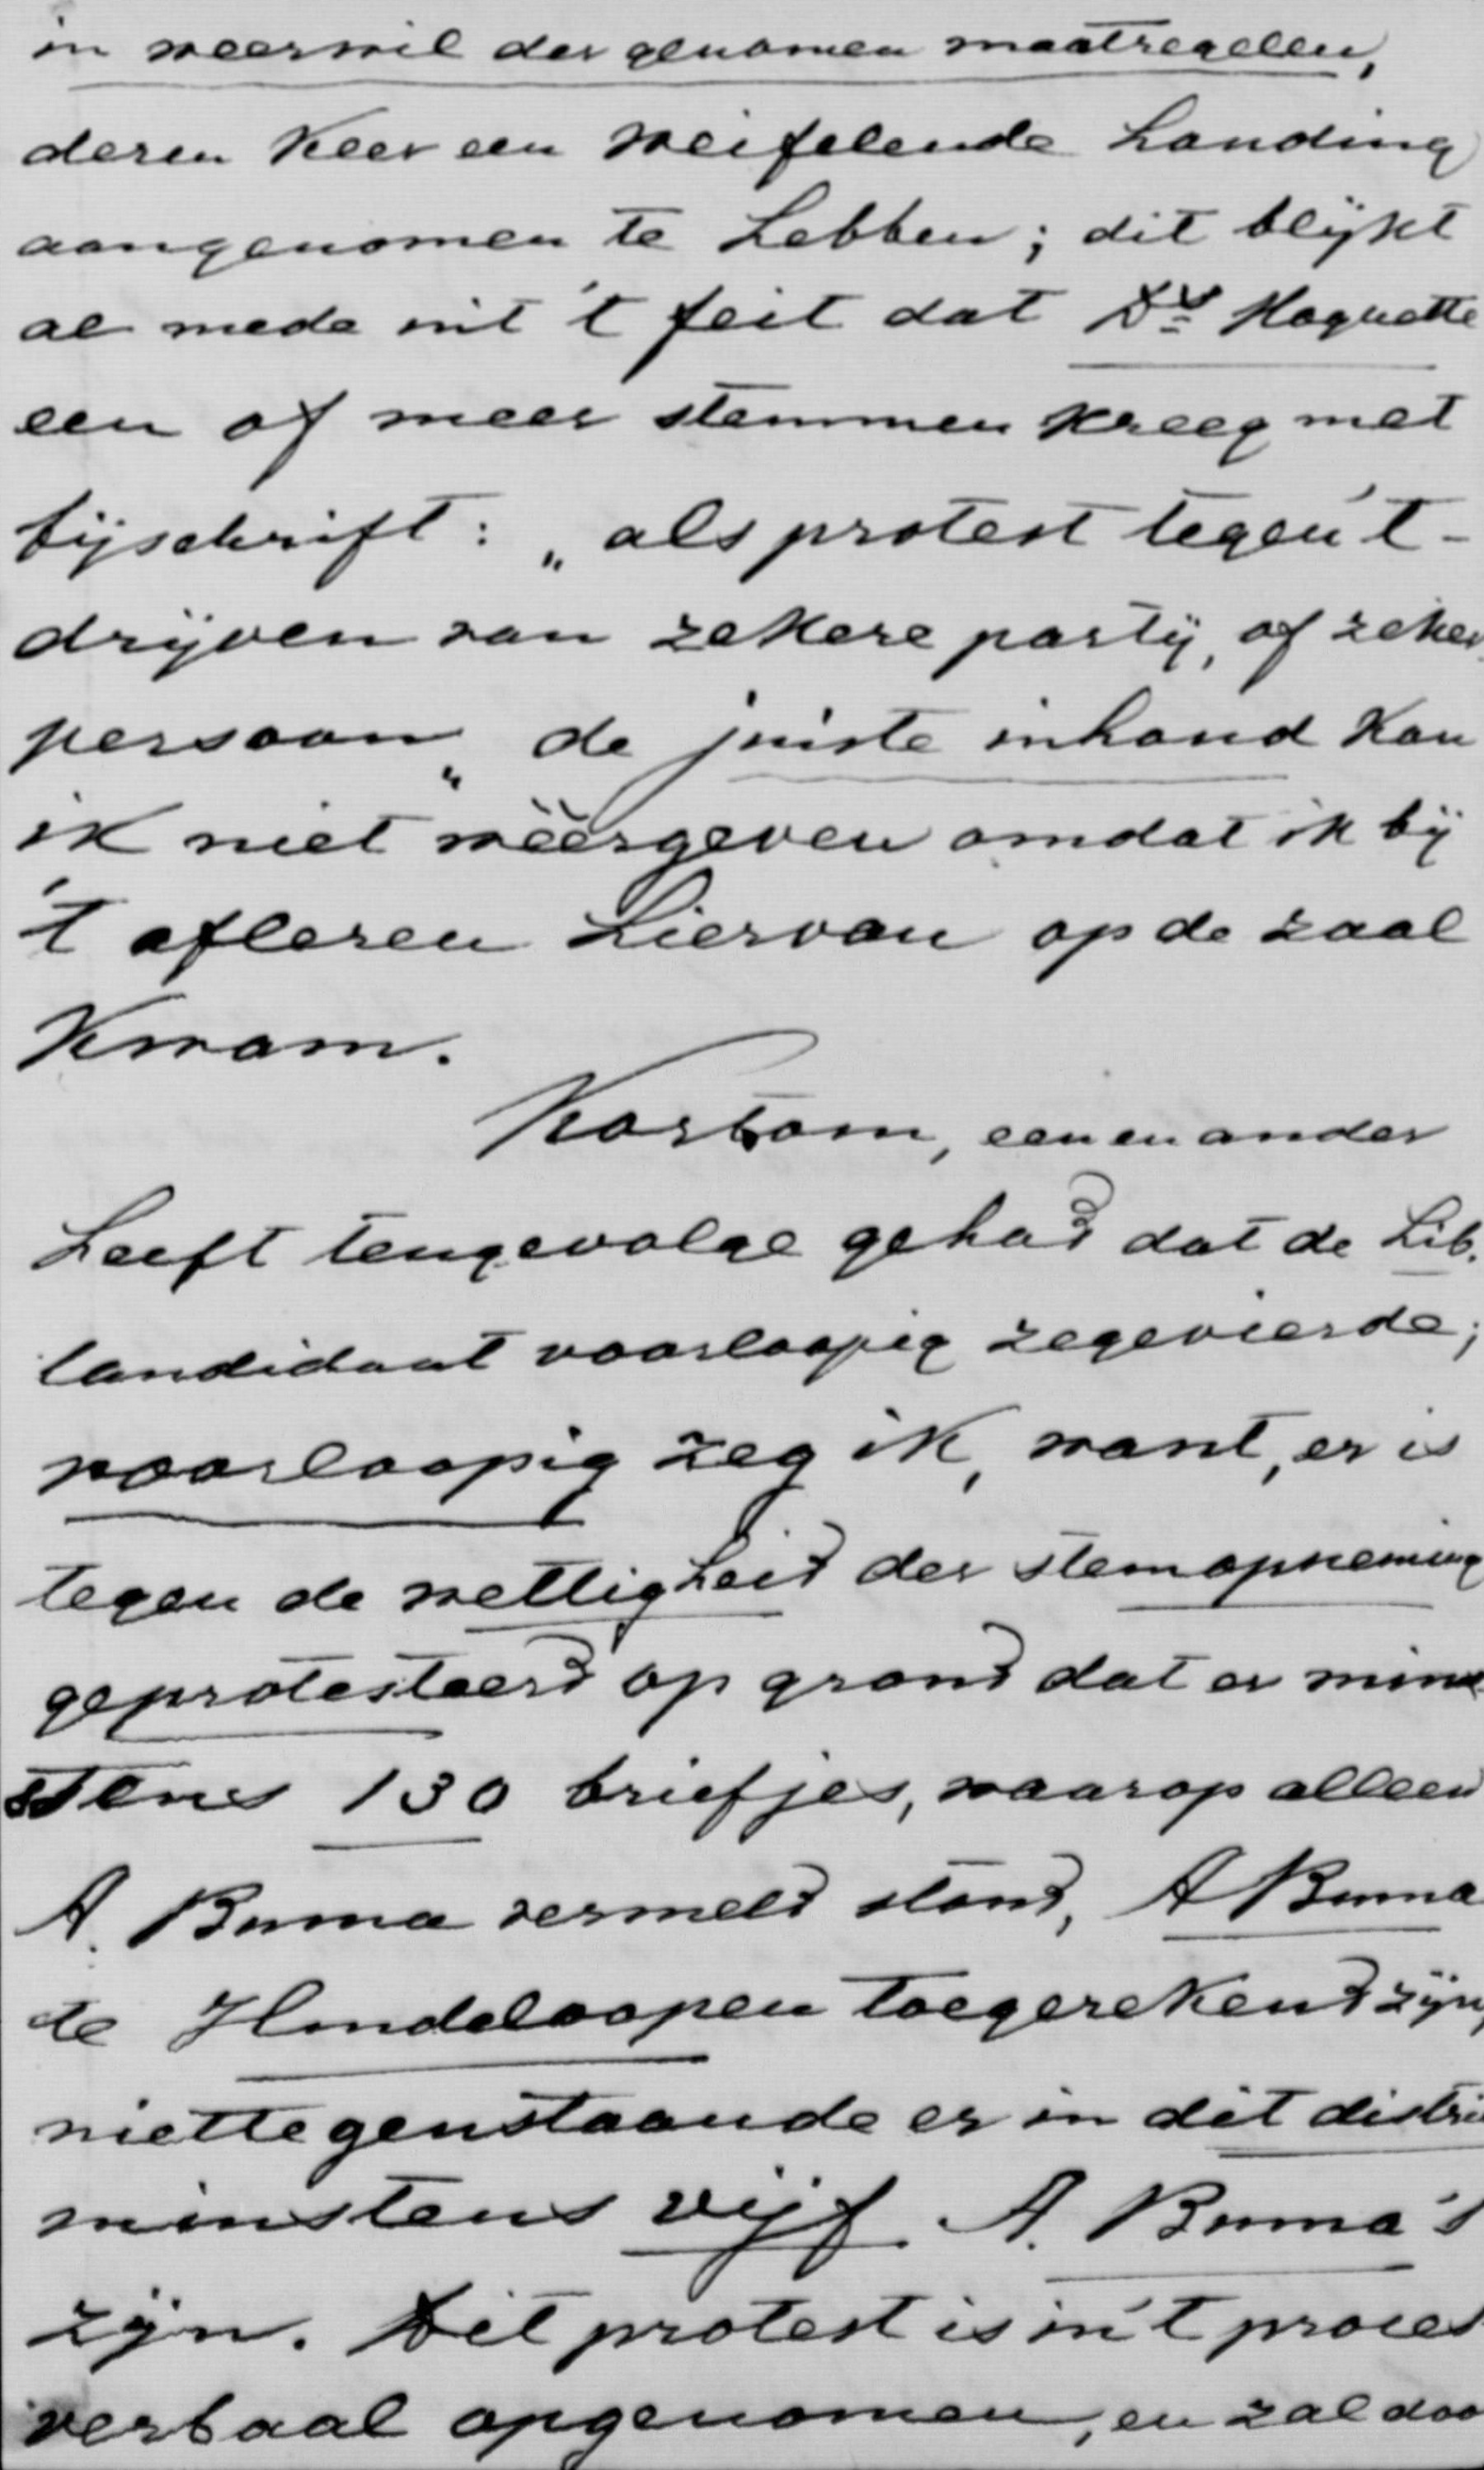 in weerwil der genomen maatregelen,
deren keer een weifelende houding
aangenomen te hebben; dit blijkt
al mede uit 't feit dat Ds Hoquette
een of meer stemmen kreeg met
bijschrift: „als protest tegen 't
drijven van zekere partij, of zeker
persoon„ de juiste inhoud kan
ik niet wéérgeven omdat ik bij
't aflezen hiervan op de zaal
kwam.
Kortom, een en ander
heeft tengevolge gehad dat de Lib.
Candidaat voorloopig zegevierde;
voorloopig zeg ik, want, er is
tegen de wettigheid der stemopneming
geprotesteerd op grond dat er mind
stens 130 briefjes, waarop alleen
A. Buma vermeld stond, A Buma
te Hindeloopen toegerekend zijn,
niettegenstaande er in dit distri
minstens vijf A. Buma's
zijn. Dit protest is in 't proces
verbaal opgenomen, en zal doo